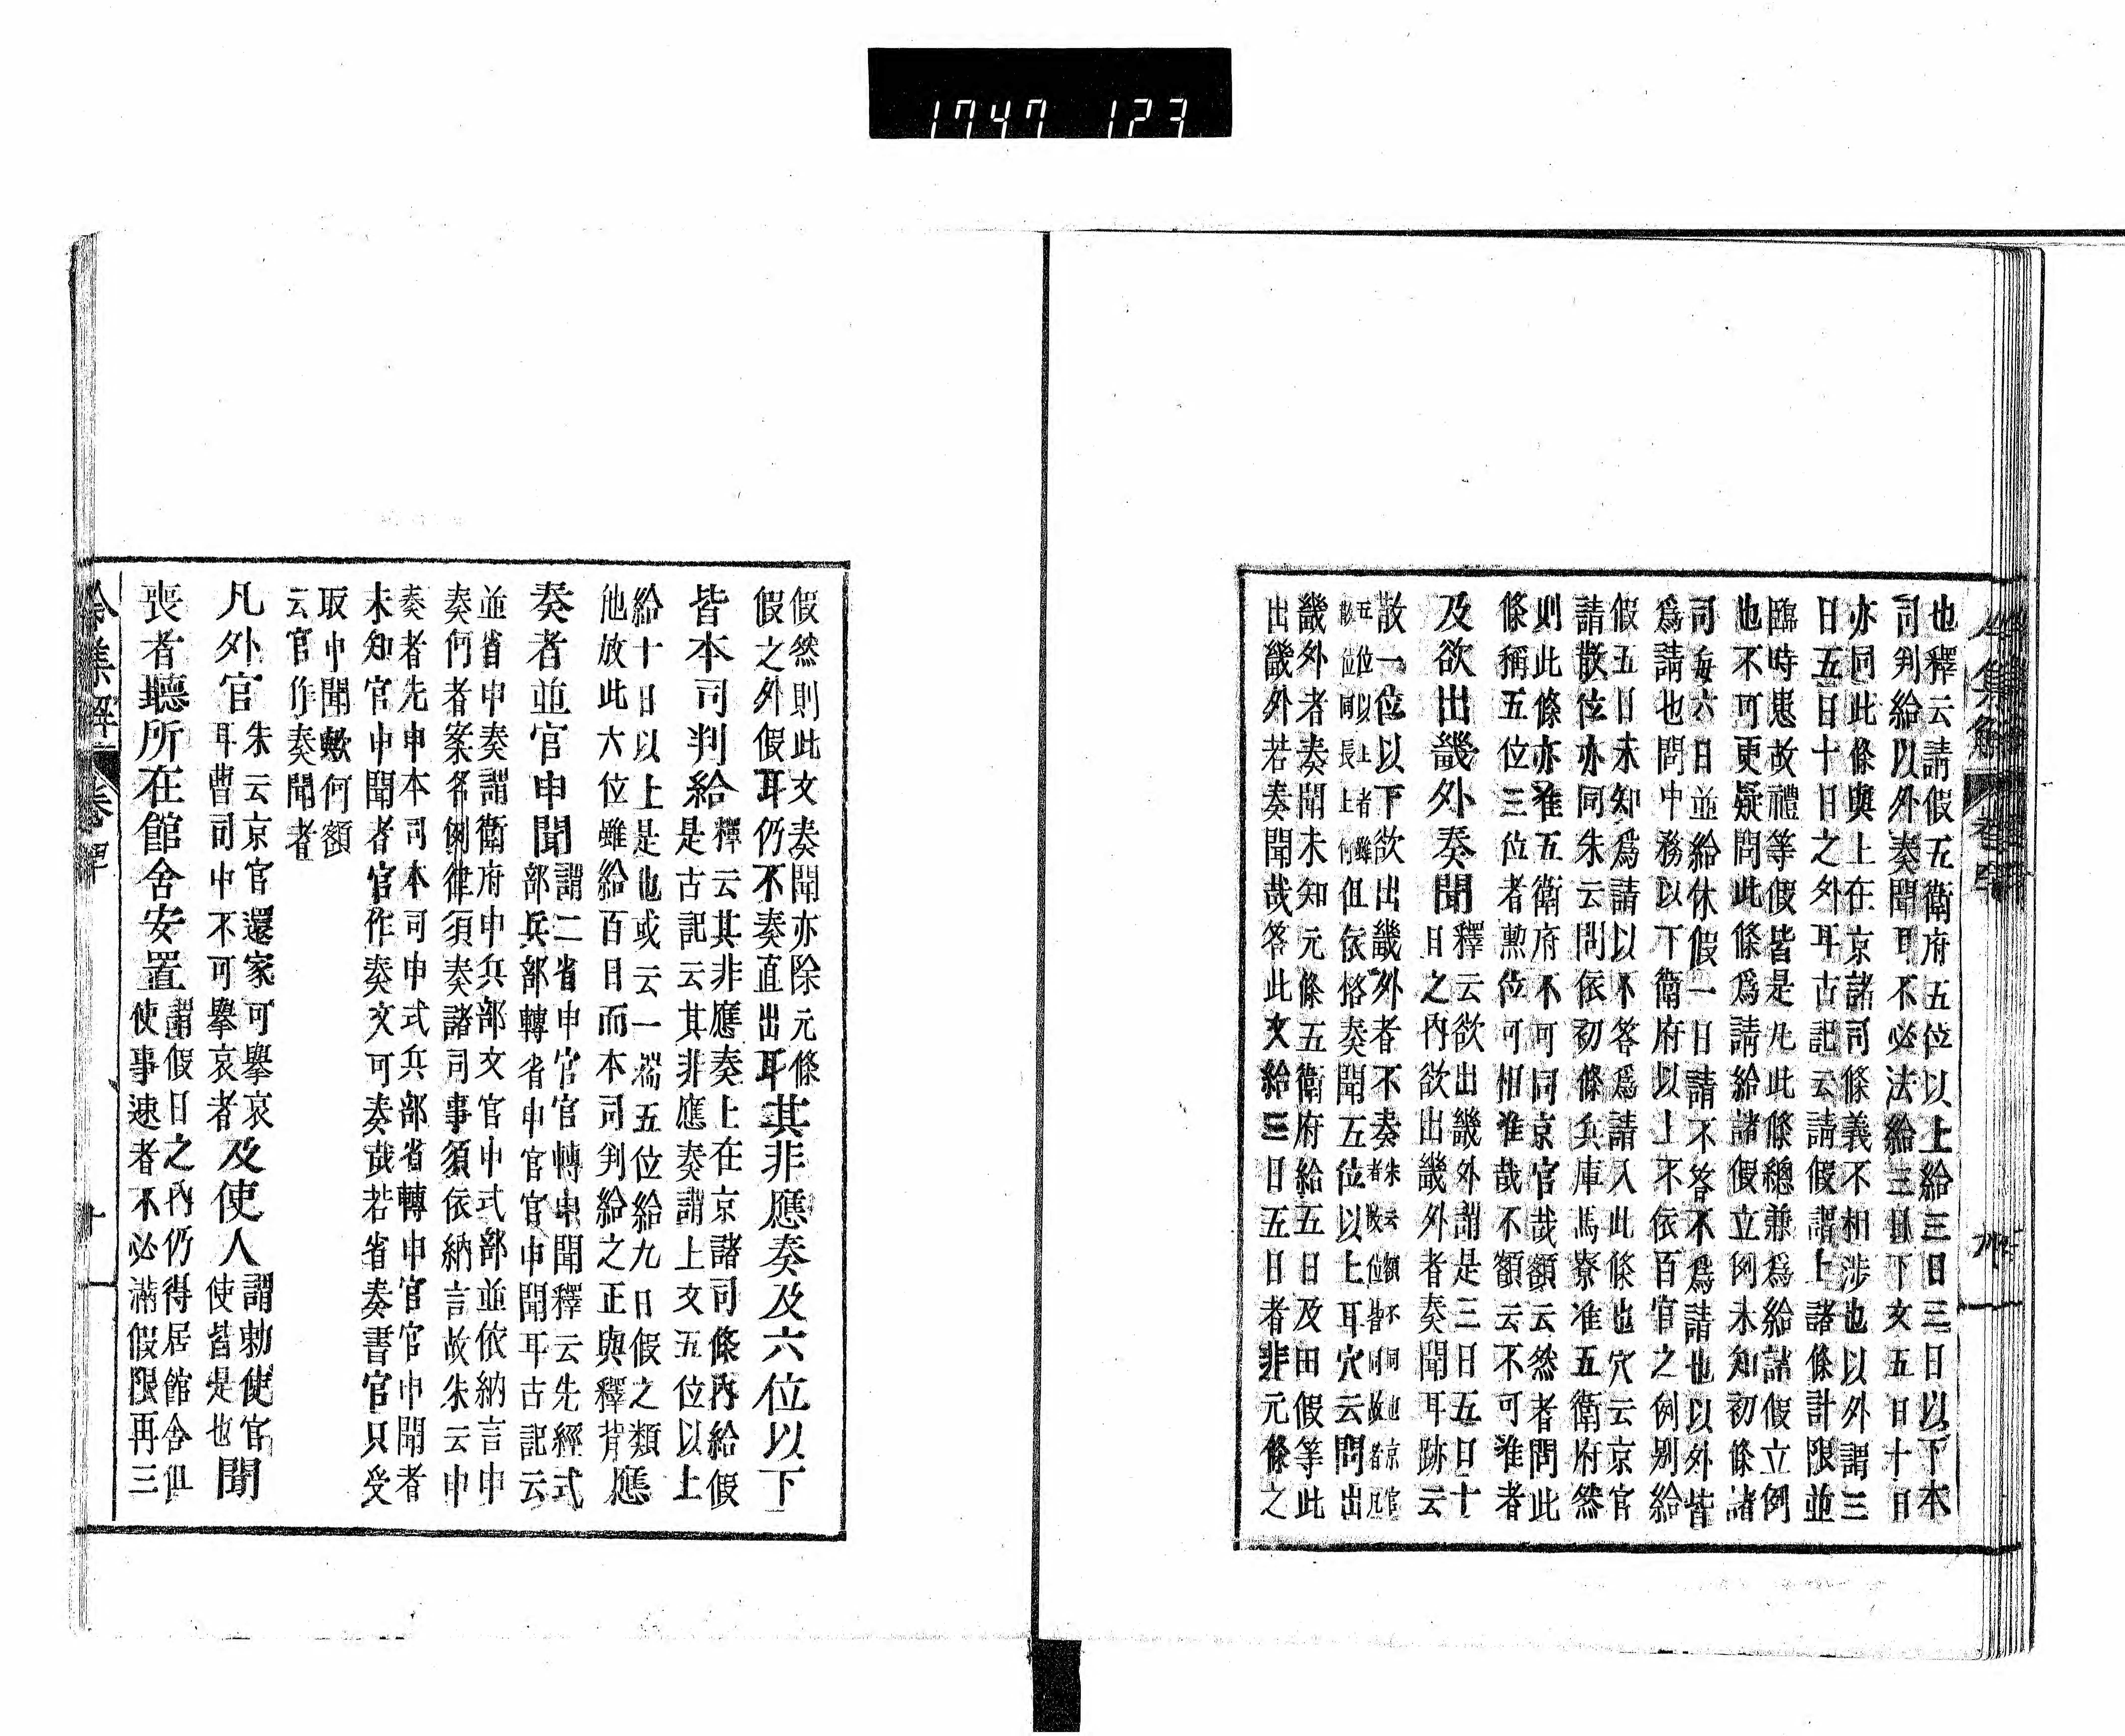 1747 123
也釋云請假五衛府五位以上給三日三日以下本
司判給以外奏聞耳不必法給三日下文五日十日
亦同此條與上在京諸司條義不相涉也以外謂三
日五日十日之外耳古記云請假謂上諸條計限並
臨時患故禮等假皆是凡此條總兼爲給諸假立例
也不可更疑問此條爲請給諸假立例未知初條諸
司每六日並給休假一日請不答不爲請也以外皆
爲請也問中務以下衛府以上不依百官之例別給
假五日未知爲請以不答爲請入此條也穴云京官
請散位亦同朱云問依初條兵庫馬寮准五衛府然
則此條亦准五衛府不可同京官哉額云然者問此
條稱五位三位者勲位可相准哉不額云不可准者
及欲出畿外奏聞釋云欲出畿外謂是三日五日十
日之内欲出畿外者奏聞耳跡云
散一位以下欲出畿外者不奏朱云額不同也京官
者散位皆同故者凡
五位以上者雖
散位同長上何但依格奏聞五位以上耳穴云問出
畿外者奏聞未知元條五衛府給五日及田假等此
出畿外若奏聞哉答此文給三日五日者非元條之
假然則此文奏聞亦除元條
假之外假耳仍不奏直出耳其非應奏及六位以下
皆本司判給釋云其非應奏上在京諸司條内給假
是古記云其非應奏謂上文五位以上
給十日以上是也或云一端五位給九日假之類
他放此六位雖給百日而本司判給之正與釋背應
奏者並官申聞謂二省申官官轉申聞釋云先經式
部兵部轉省申官官申聞耳古記云
並省申奏謂衛府申兵部文官申式部並依納言申
奏何者案名例律須奏諸司事須依納言故朱云申
奏者先申本司本司申式兵部省轉申官官申聞者
未知官申聞者官作奏文可奏哉若省奏書官只受
取申聞歟何額
云官作奏聞者
凡外官朱云京官還家可擧哀
耳曹司中不可擧哀者及使人謂勅使官
使皆是也聞
喪者聽所在館舍安置謂假日之内仍得居館舍但
使事速者不必滿假限再三